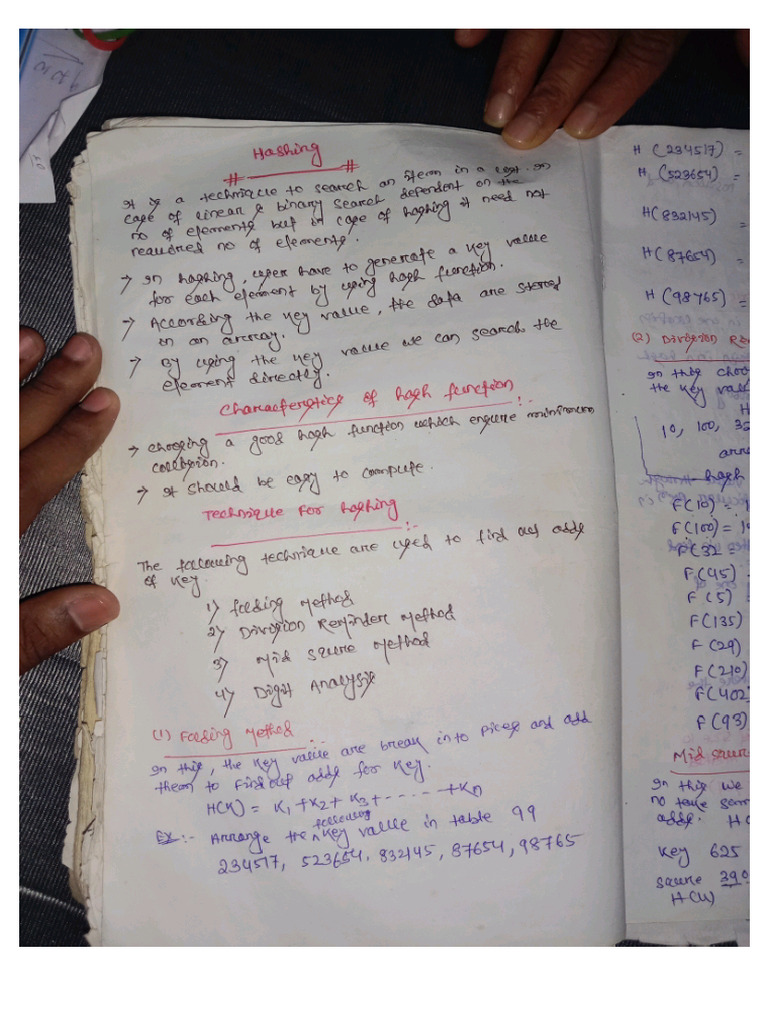 Hashing
It is a technique to search an item in a list. In
case of linear & binary search dependent on the
no of elements but in case of hashing it need not
required no of elements.
→ In hashing, user have to generate a key value
for each element by using hash function.
→ According the key value, the data are stored
in an array.
→ By using the key value we can search the
element directly.
Characteristics of hash function :-
→ Choosing a good hash function which ensure minimum
collision.
→ It should be easy to compute.
Technique for hashing :-
The following technique are used to find out adds
of key.
1) folding method
2) Division Reminder method
3) Mid saure method
4) Digit Analysis
(1) Folding method :-
In this, the key value are break into pices and add
them to find out adds for key.
H(K) = K1 + K2 + K3 + ----- + Kn
EX :- Arrange the following key value in table 99
234517, 523654, 832145, 87654, 98765
H (234517) =
H (523654) =
H (832145) =
H (87654) =
H (98765) =
(2) Division Re
In this choo
the key val
H
10, 100, 32
arra
hash
F(10) = 1
F(100) = 10
F(32 =
F(45)
F(5)
F(135)
F(29)
F(210)
F(402)
F(93)
Mid saure
In this we
no take som
adds.
key 625
saure 390
H(K)